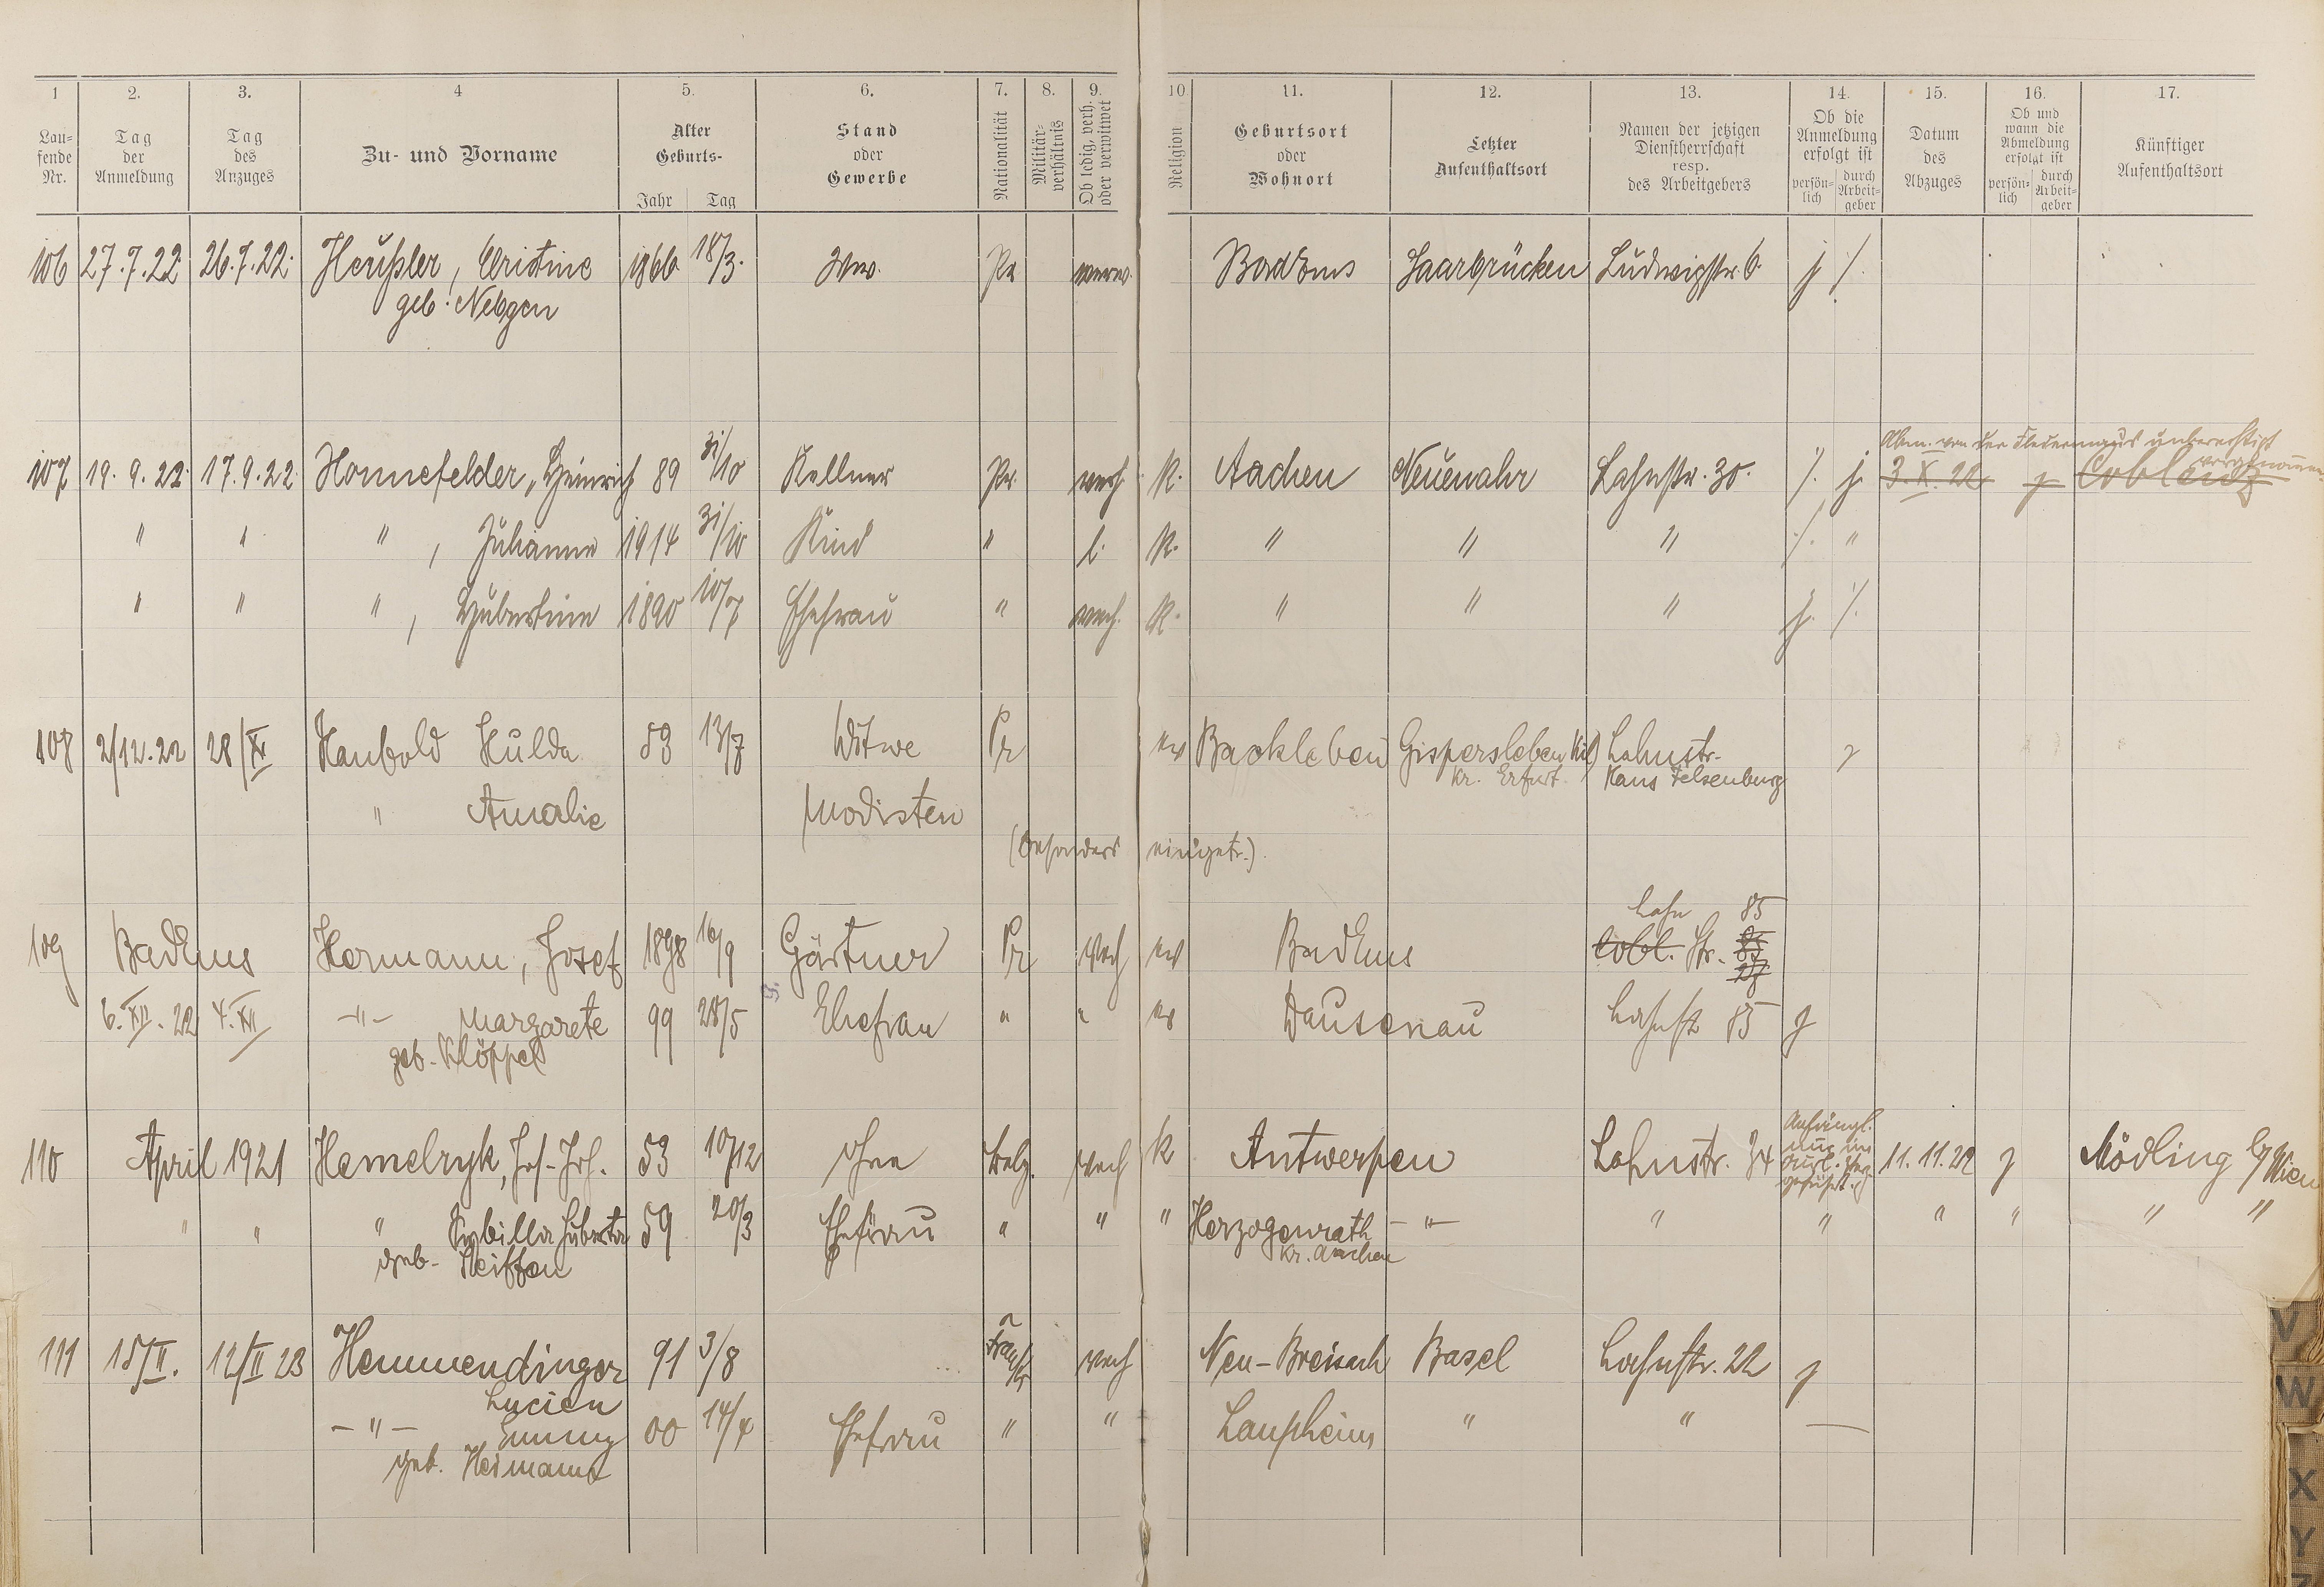 1 2. 3. 4 5. 6. 7. 8. 9. 10 11. 12. 13. 14. 15. 16. 17.
Lau-
fende
Nr.
Tag
der
Anmeldung
Tag
des
Anzuges
Zu- und Vorname
Alter
Geburts-
Jahr Tag
Stand
oder
Gewerbe
Nationalität
Militär-
verhältnis
Ob ledig, verh.
oder verwitwet
Religion
Geburtsort
oder
Wohnort
Letzter
Aufenthaltsort
Namen der jetzigen
Dienstherrschaft
resp.
des Arbeitgebers
Ob die
Anmeldung
erfolgt ist
persön-
lich
durch
Arbeit-
geber
Datum
des
Abzuges
Ob und
wann die
Abmeldung
erfolgt ist
persön-
lich
durch
Arbeit-
geber
Künftiger
Aufenthaltsort
106 27.7.22 26.7.22. Heußler, Cristine 1866 18/3. Wwe. Pr verw. Bad Ems Saarbrücken Ludwigstr. 6. j /.
geb. Nebgen
Abm. von der unberechtigt
vorgenommen
107 19.9.22. 17.9.22. Honnefelder, Heinrich 89 31/10 Kellner Pr. verh. K. Aachen Neuenahr Lahnstr. 30. /. j. 3.X.22 j Coblenz
" " " , Julianne 1914 31/10 Kind " l. K. " " " /. "
" " " , Hubertine 1890 10/7 Ehefrau " verh. K. " " " j. /.
108 2/12.22 28/XI Haubold Hulda 53 13/7 Witwe Pr ev Backleben Gispersleben Kil) Lahnstr. j
Kr. Erfurt Haus Felsenburg
" Amalie Modisten
(besonders eingetr.)
Lahn 85
109 Bad Ems Hermann, Josef 1898 16/9 Gärtner Pr verh ev Bad Ems Cobl. Str.
6.XII.22 4.XII -"- Margarete 99 28/5 Ehefrau " " ev Dausenau Lahnstr 85 j
geb. Klöppel
Anfängl.
nur im
110 April 1921 Hemelryk, Jos. Joh. 53 10/12 ohne Belg. verh K Antwerpen Lahnstr. 34 11.11.22 j Mödling b/Wien
geführt.
" " " Sybilla Huberta 59 20/3 Ehefrau " " " Herzogenrath -"- " " " " " "
geb. Steiffen Kr. Aachen
111 15/II. 12/II 23 Hemmendinger 91 3/8 verh Neu-Breisach Basel Lahnstr. 22 j
Lucien
-"- Emmy 00 14/4 Ehefrau " " Laupheim " " —
geb. Heimann
V
W
X
Y
Z